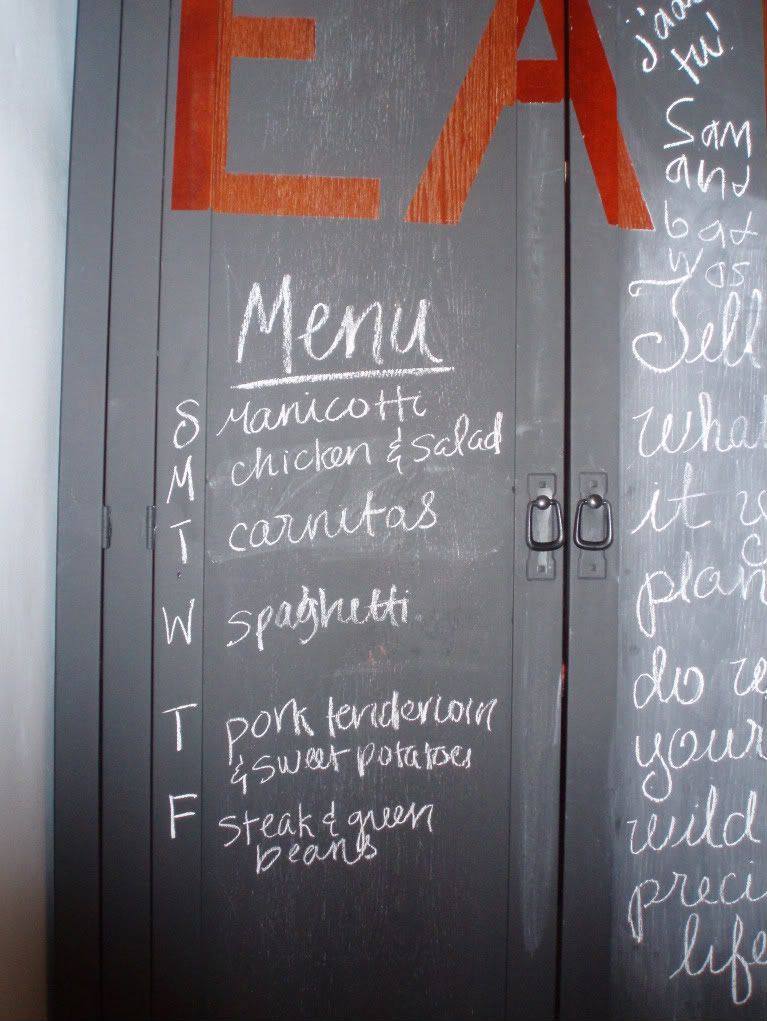 EA
Menu
S Manicotti
M chicken & salad
T carnitas
W spaghetti
T pork tenderloin
& sweet potatoes
F steak & green
beans
tu!
Sam
and
bat
was
Tell
what
it
plan
do
your
wild
preci
life